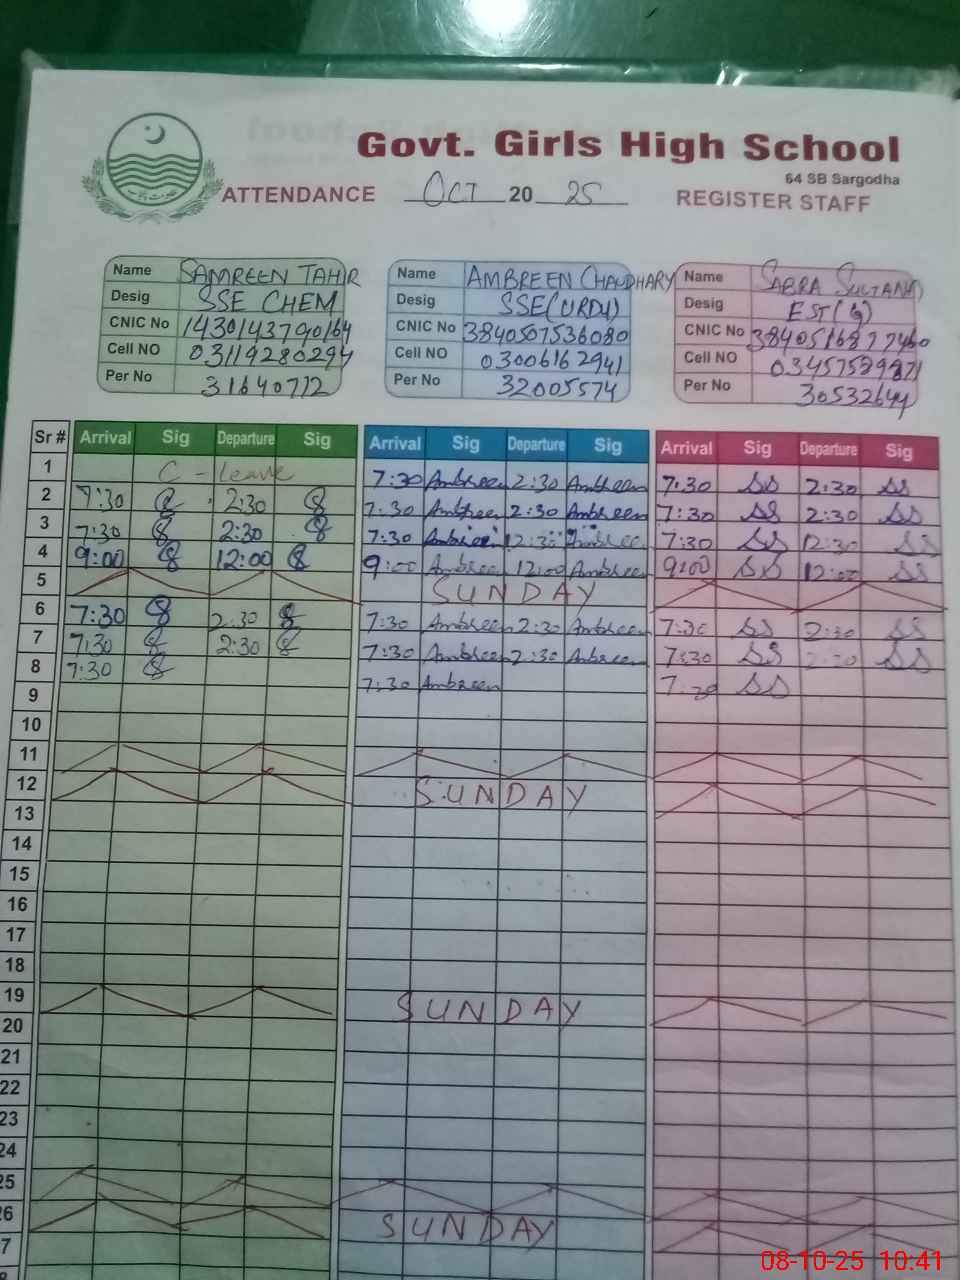 Govt. Girls High School
64 SB Sargodha
ATTENDANCE OCT 20 25 REGISTER STAFF
Name SAMREEN TAHIR Name AMBREEN CHAUDHARY Name SABRA SULTANA
Desig SSE CHEM Desig SSE(URDU) Desig EST(G)
CNIC No 1430143790164 CNIC No 3840507536080 CNIC No 3840516877460
Cell NO 03119280294 Cell NO 03006162941 Cell NO
Per No 31640712 Per No 32005574 Per No 30532644
Sr # Arrival Sig Departure Sig Arrival Sig Departure Sig Arrival Sig Departure Sig
1 C - Leave 7:30 Ambreen 2:30 Ambreen 7:30 SS 2:30 SS
2 7:30 2:30 7:30 Ambreen 2:30 Ambreen 7:30 SS 2:30 SS
3 7:30 2:30 7:30 Ambreen 12:30 Ambreen 7:30 SS 12:30 SS
4 9:00 12:00 9:00 Ambreen 12:00 Ambreen 9:00 SS 12:00 SS
5 SUNDAY
6 7:30 2:30 7:30 Ambreen 2:30 Ambreen 7:30 SS 2:30 SS
7 7:30 2:30 7:30 Ambreen 2:30 Ambreen 7:30 SS 2:30 SS
8 7:30 7:30 Ambreen 7:30 SS
9
10
11
12 SUNDAY
13
14
15
16
17
18
19 SUNDAY
20
21
22
23
24
25
26 SUNDAY
7
08-10-25 10:41